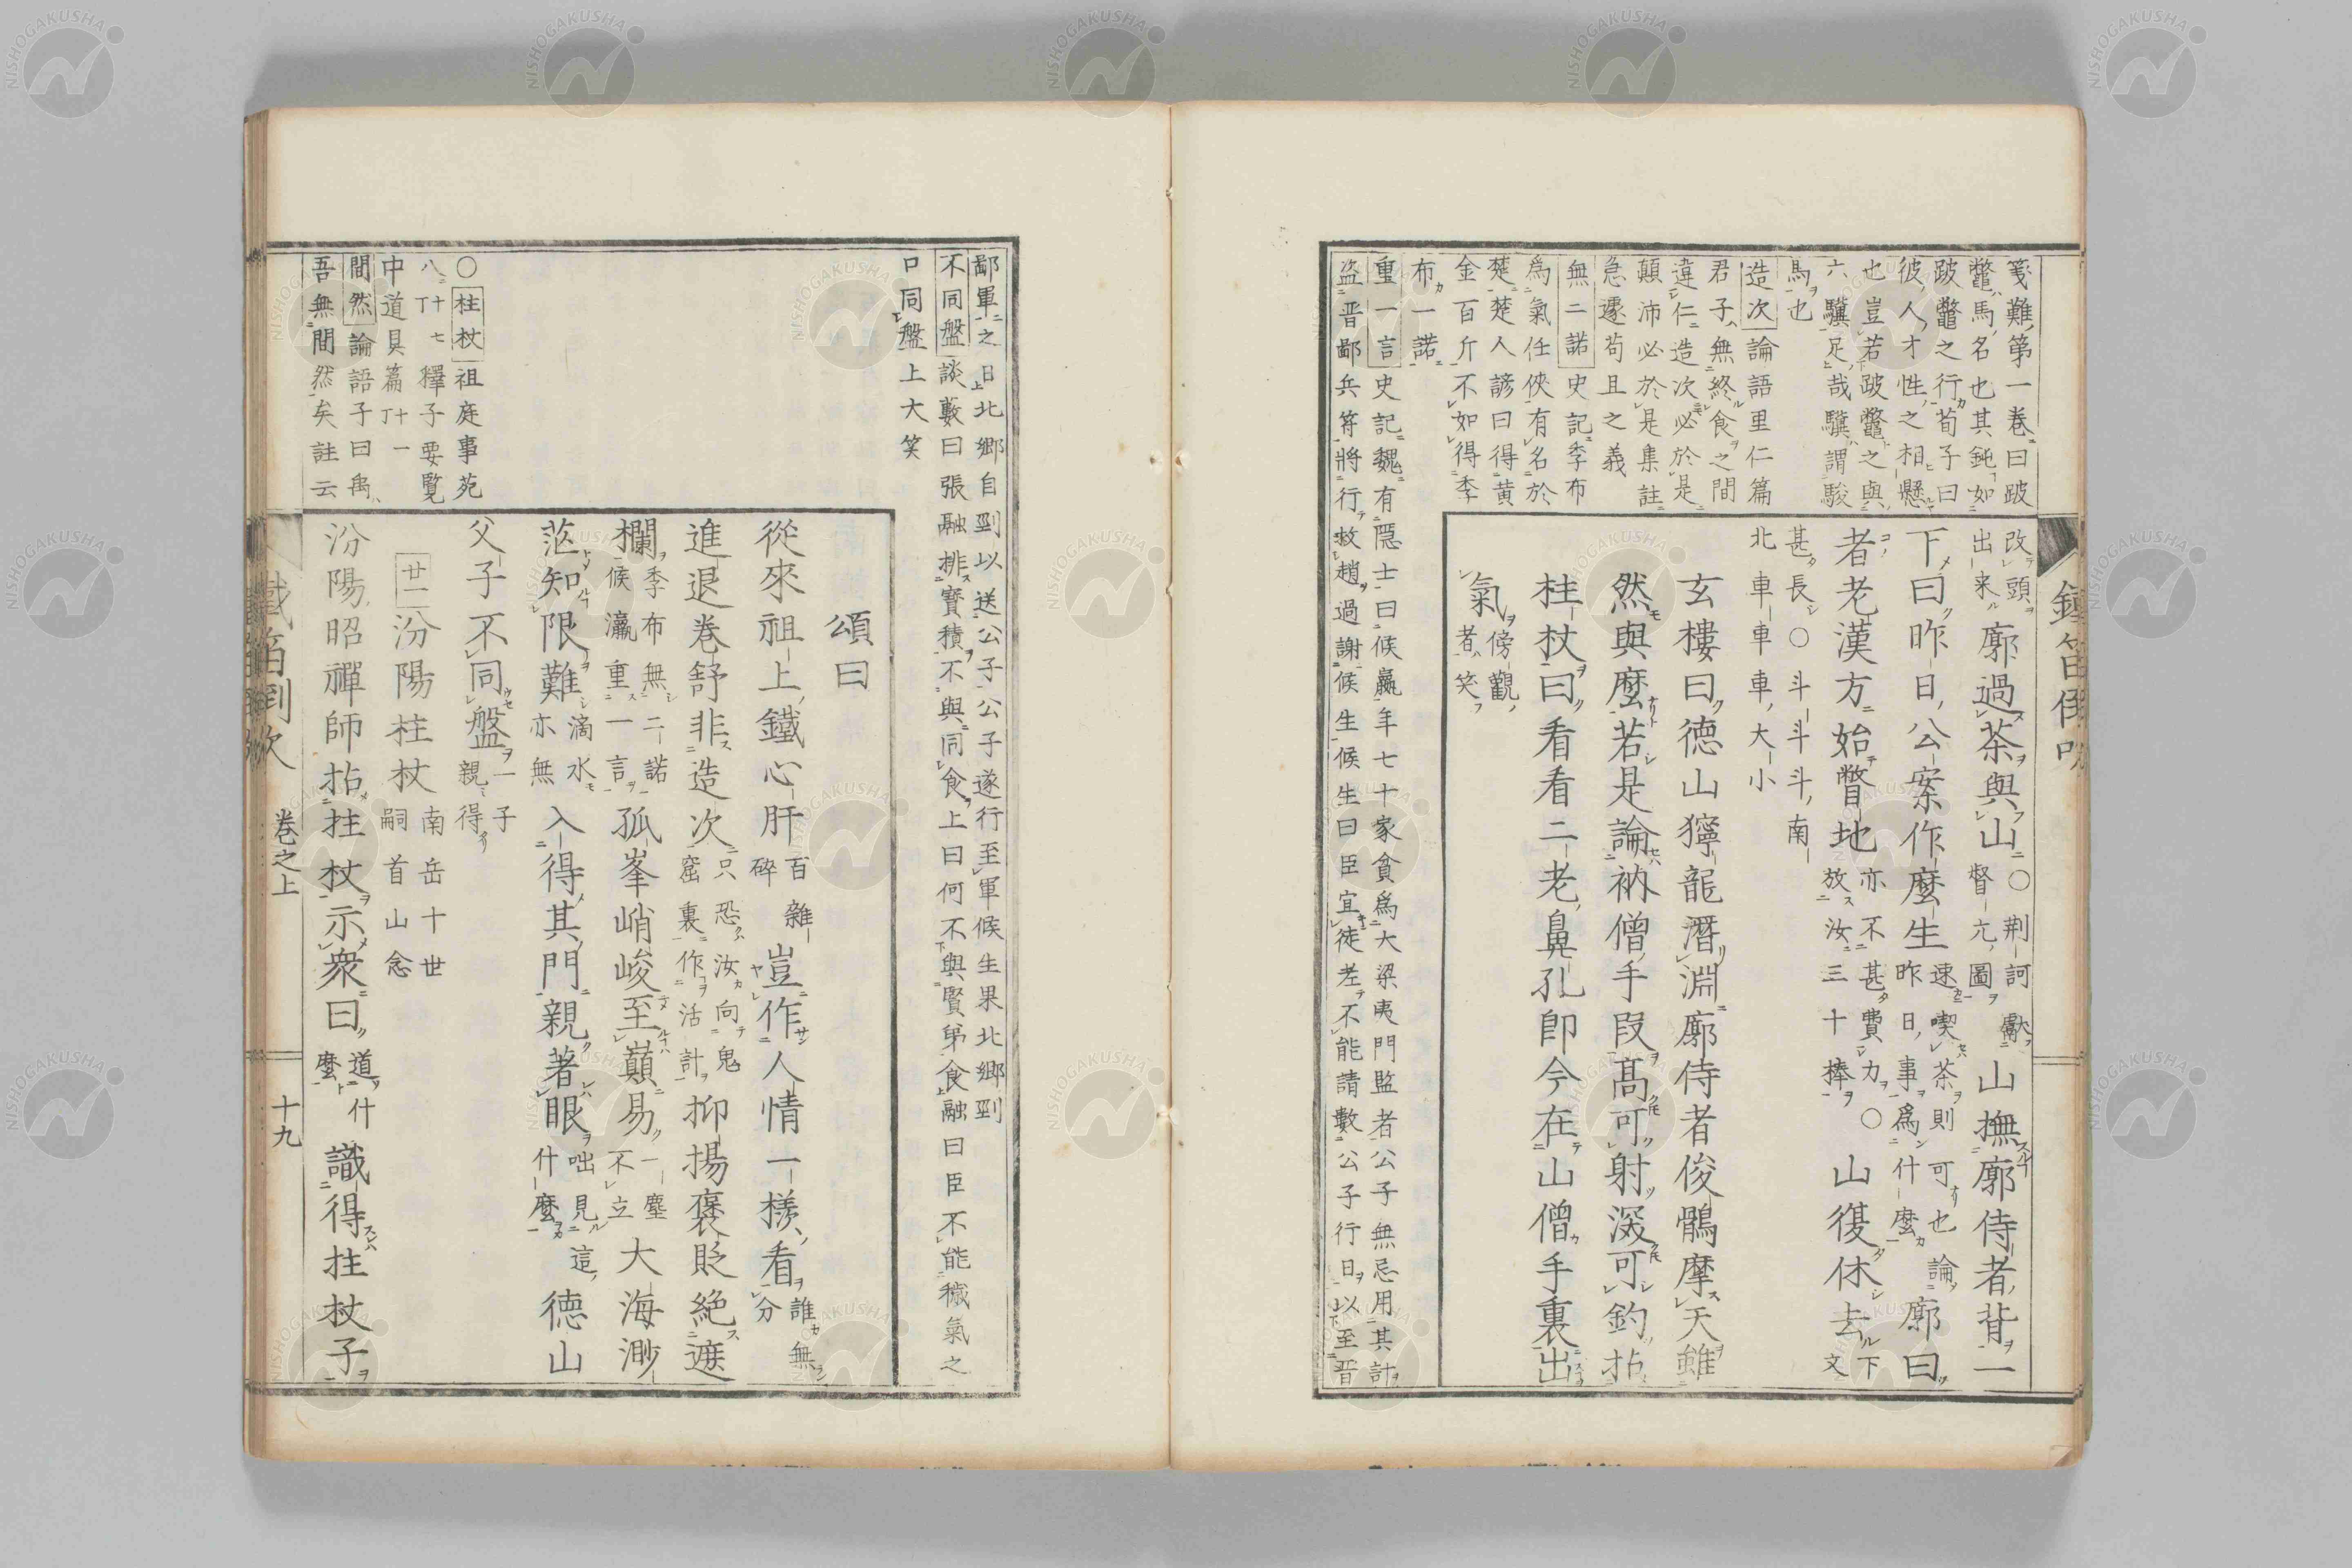 箋難第一巻曰跛
鼈馬名也其鈍如
跛鼈之行荀子曰
彼人才性之相懸
也豈若跛鼈之與
六驥足哉驥謂駿
馬也
造次論語里仁篇
君子無終食之間
違仁造次必於是
顛沛必於是集註
急遽苟且之義
無二諾史記季布
為氣任俠有名於
楚楚人諺曰得黄
金百斤不如得季
布一諾
重一言史記魏有隠士曰候嬴年七十家貧為大梁夷門監者公子無忌用其計
盗晋鄙兵符將行救趙過謝候生候生曰臣宜徒老不能請數公子行日以至晋
改頭
出来
廓過茶與山
○荆訶
督亢圖
山撫廓侍者背一
下曰昨日公案作麼生
速喫茶則可也論
昨日事為什麼
廓曰
者老漢方始瞥地
亦不甚費力
放汝三十棒
○山復休去
下
文
甚長○斗斗斗南
北車車車大小
玄樓曰徳山獰龍潛淵廓侍者俊鶻摩天雖
然與麼若是論衲僧手段髙可射深可釣拈
柱杖曰看看二老鼻孔卽今在山僧手裏出
氣
傍觀
者笑
鐵笛倒吹
鄙軍之日北郷自剄以送公子公子遂行至軍候生果北郷剄
不同盤談藪曰張融排寶積不與同食上曰何不與賢弟食融曰臣不能穢氣之
口同盤上大笑
○柱杖祖庭事苑
八丁十七釋子要覧
中道具篇丁十一
間然論語子曰禹
吾無間然矣註云
頌曰
從來祖上鐵心肝
百雜
碎
豈作人情一様看
誰無
分
進退卷舒非造次
只恐汝向鬼
窟裏作活計
抑揚褒貶絶遮
欄
季布無二諾
候瀛重一言
孤峯峭峻至巓易
一塵
不立
大海渺
茫知限難
滴水
亦無
入得其門親著眼
咄見這
什麼
徳山
父子不同盤
一子
親得
廿二汾陽柱杖
南岳十世
嗣首山念
汾陽昭禪師拈拄杖示衆曰
道什
麼
識得拄杖子
鐵笛倒吹 巻之上 十九